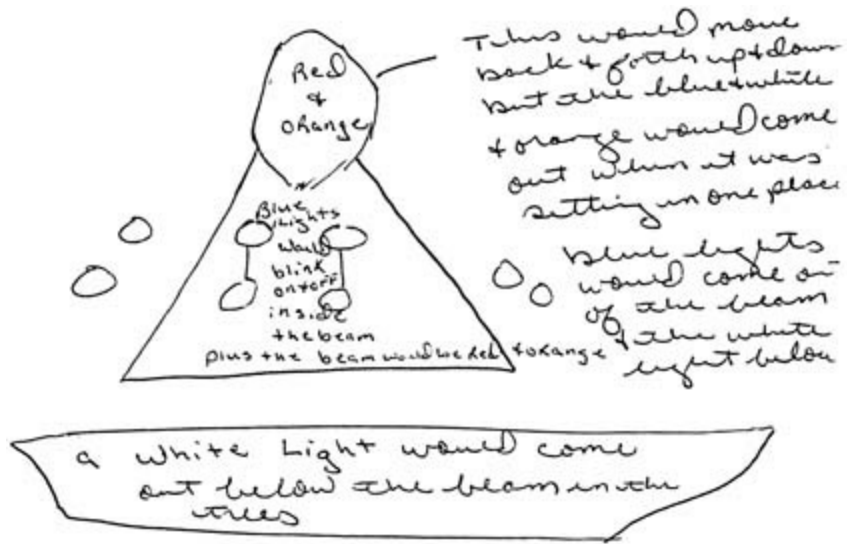 Red
&
Orange
This would move
back & forth up & down
but the blue & white
& orange would come
out when it was
setting in one place
Blue
lights
would
blink
on & off
inside
the beam
plus the beam would be Red & orange
blue lights
would come out
of the beam
& the white
light below
a white Light would come
out below the beam in the
trees